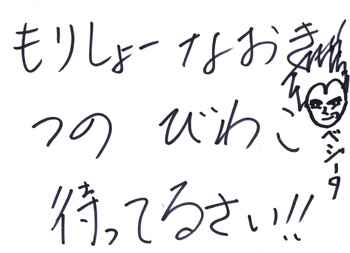 もりしょー なおき
つの びわこ
待ってるさい!!
ベジータ